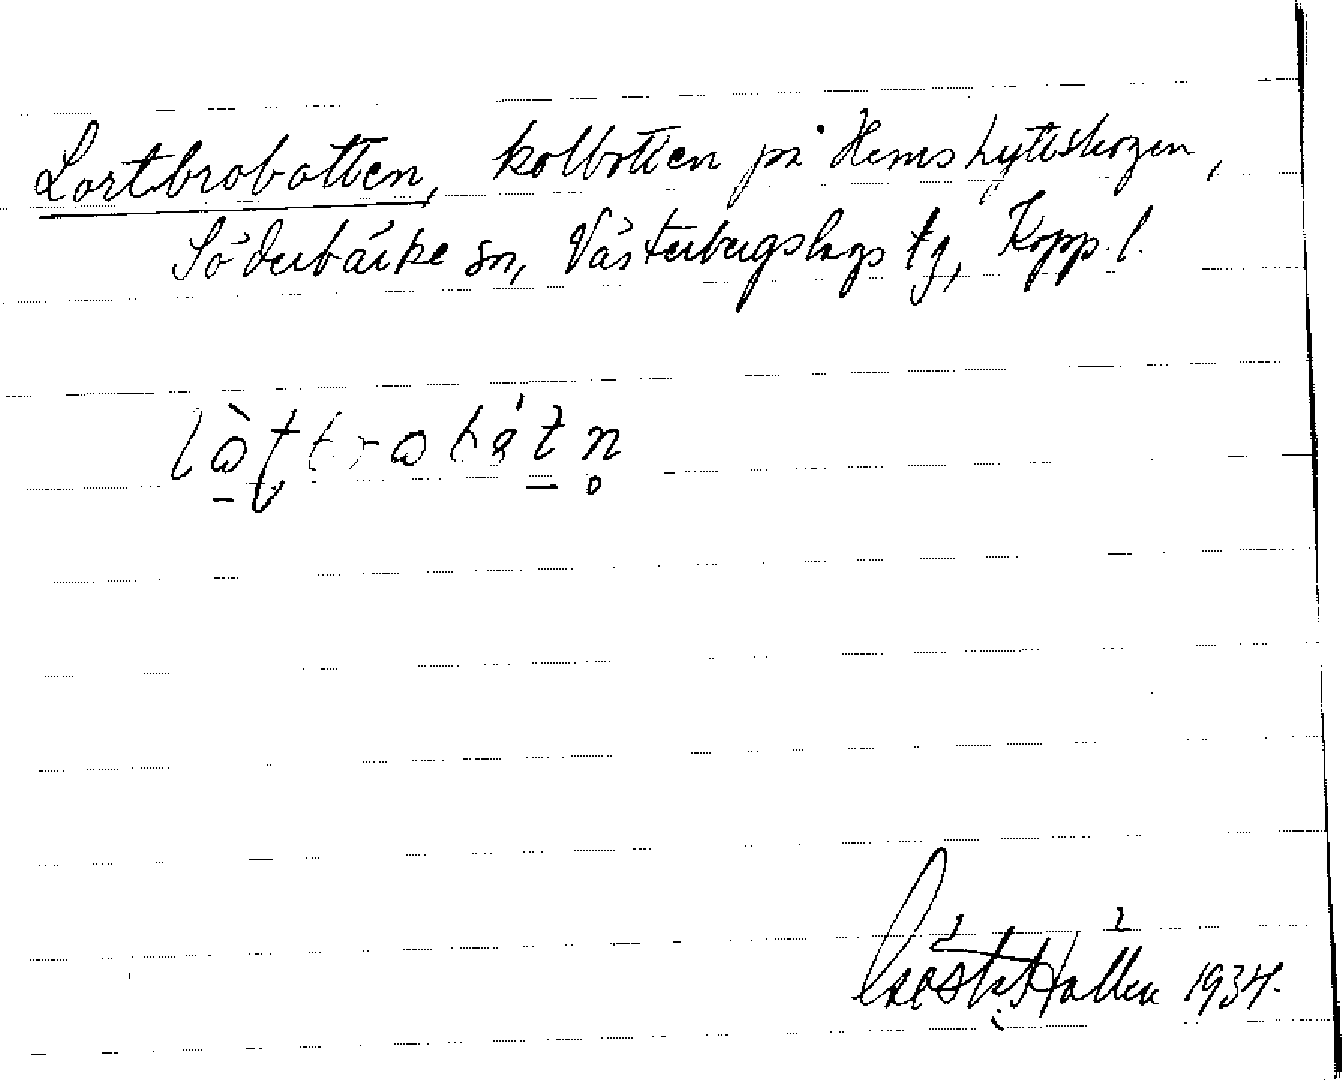 Lortbrobotten, kolbotten på Hemshyttskogen,
Söderbärke sn, Västerbergslags tg, Kopp. l.
Gösta Hallén 1934.